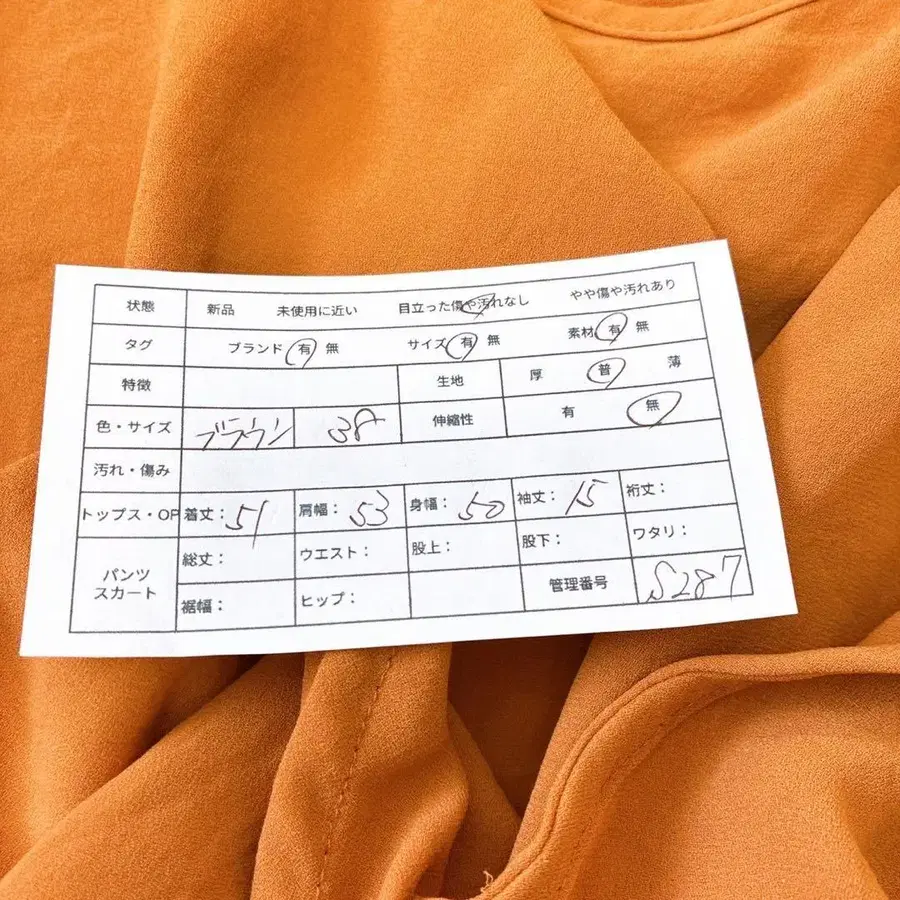 状態 新品 未使用に近い 目立った傷や汚れなし やや傷や汚れあり
タグ ブランド 有 無 サイズ 有 無 素材 有 無
特徴 生地 厚 普 薄
色・サイズ ブラウン 38 伸縮性 有 無
汚れ・傷み
トップス・OP 着丈: 51 肩幅: 53 身幅: 50 袖丈: 15 裄丈:
パンツ スカート 総丈: ウエスト: 股上: 股下: ワタリ:
裾幅: ヒップ: 管理番号 S287